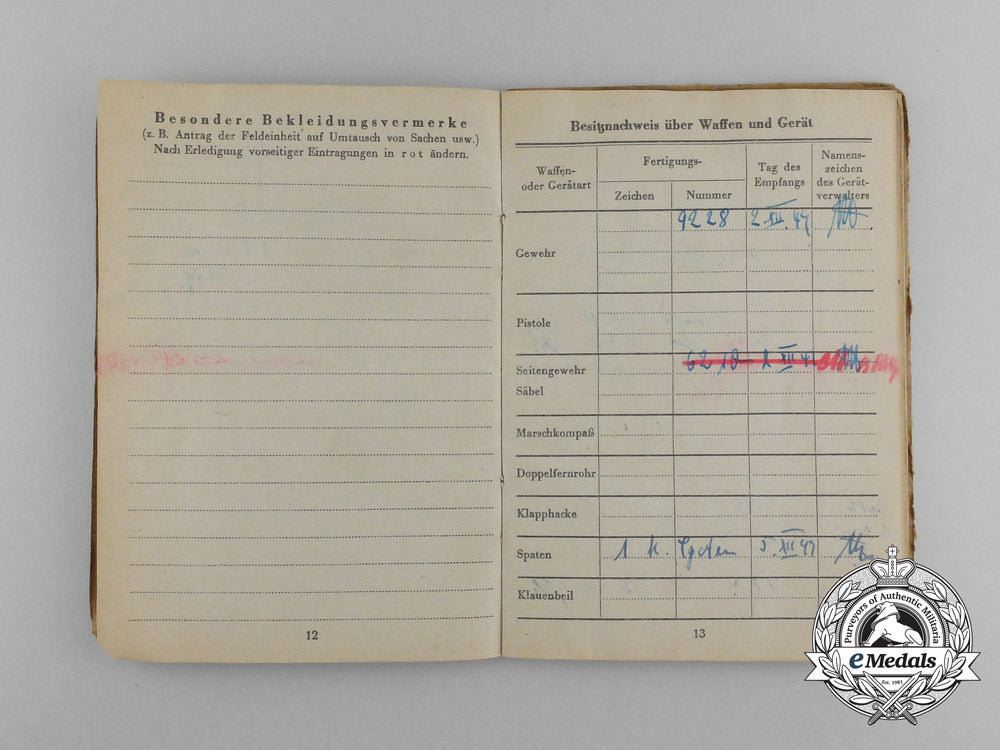 Besondere Bekleidungsvermerke
(z. B. Antrag der Feldeinheit auf Umtausch von Sachen usw.)
Nach Erledigung vorseitiger Eintragungen in rot ändern.
12
Besitznachweis über Waffen und Gerät
Waffen- oder Gerätart
Fertigungs-
Zeichen
Nummer
Tag des Empfangs
Namens-
zeichen
des Gerät-
verwalters
9228
Gewehr
Pistole
Seitengewehr
Säbel
Marschkompaß
Doppelfernrohr
Klapphacke
Spaten 1 kl. Spaten
Klauenbeil
13
Purveyors of Authentic Militaria
eMedals
Est. 1981